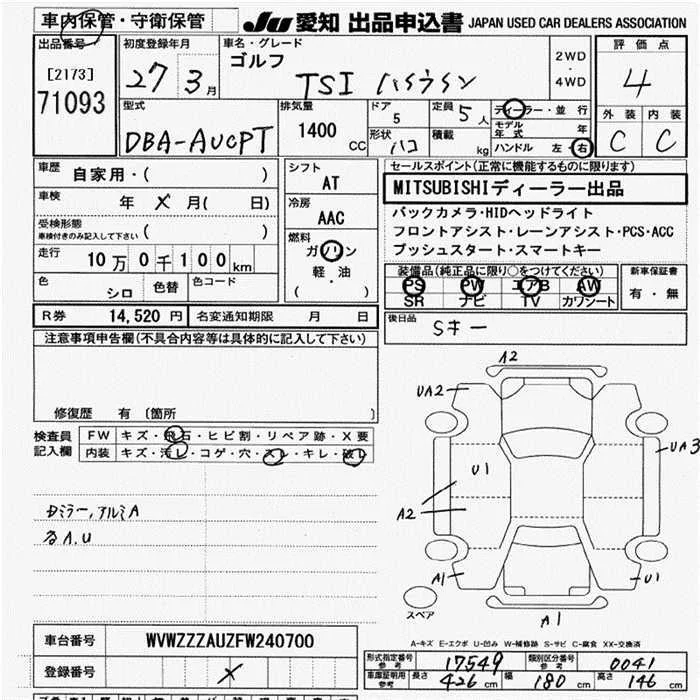 車内保管・守衛保管
JU 愛知 出品申込書 JAPAN USED CAR DEALERS ASSOCIATION
出品番号
[2173]
71093
初度登録年月
27 3月
車名・グレード
ゴルフ
TSI ハイライン
2WD
・
4WD
評価点
4
型式
DBA-AUCPT
排気量
1400 CC
ドア
5
形状 ハコ
定員 5人
積載 kg
ディーラー・並行
モデル年式 年
ハンドル 左・右
外装 内装
C C
車歴 自家用・( )
車検 年 X 月( 日)
受検形態
車検付きのみ記入して下さい ( )
走行 10万0千100km
色 シロ 色替 色コード
シフト
AT
冷房
AAC
燃料
ガソリン
軽・油
( )
セールスポイント(正常に機能するものに限ります)
MITSUBISHIディーラー出品
バックカメラ・HIDヘッドライト
フロントアシスト・レーンアシスト・PCS・ACC
プッシュスタート・スマートキー
装備品(純正品に限り○をつけてください)
PS PW エアB AW
SR ナビ TV カワシート
新車保証書
有・無
R券 14,520 円 名変通知期限 月 日
後日品 Sキー
注意事項申告欄(不具合内容等は具体的に記入して下さい)
修復歴 有 〔箇所 〕
検査員
記入欄
FW キズ・飛石・ヒビ割・リペア跡・X要
内装 キズ・汚レ・コゲ・穴・スレ・キレ・破レ
ミラー,アルミA
A.U
A2
UA2
UA3
U1
A2
A1
U1
A1
スペア
A-キズ E-エクボ U-凹み W-補修跡 S-サビ C-腐食 XX-交換済
車台番号 WVWZZZAUZFW240700
登録番号 X
形式指定番号 参考 17549 類別区分番号 参考 0041
車庫証明用 参考 長さ 426 cm 幅 180 cm 高さ 146 cm